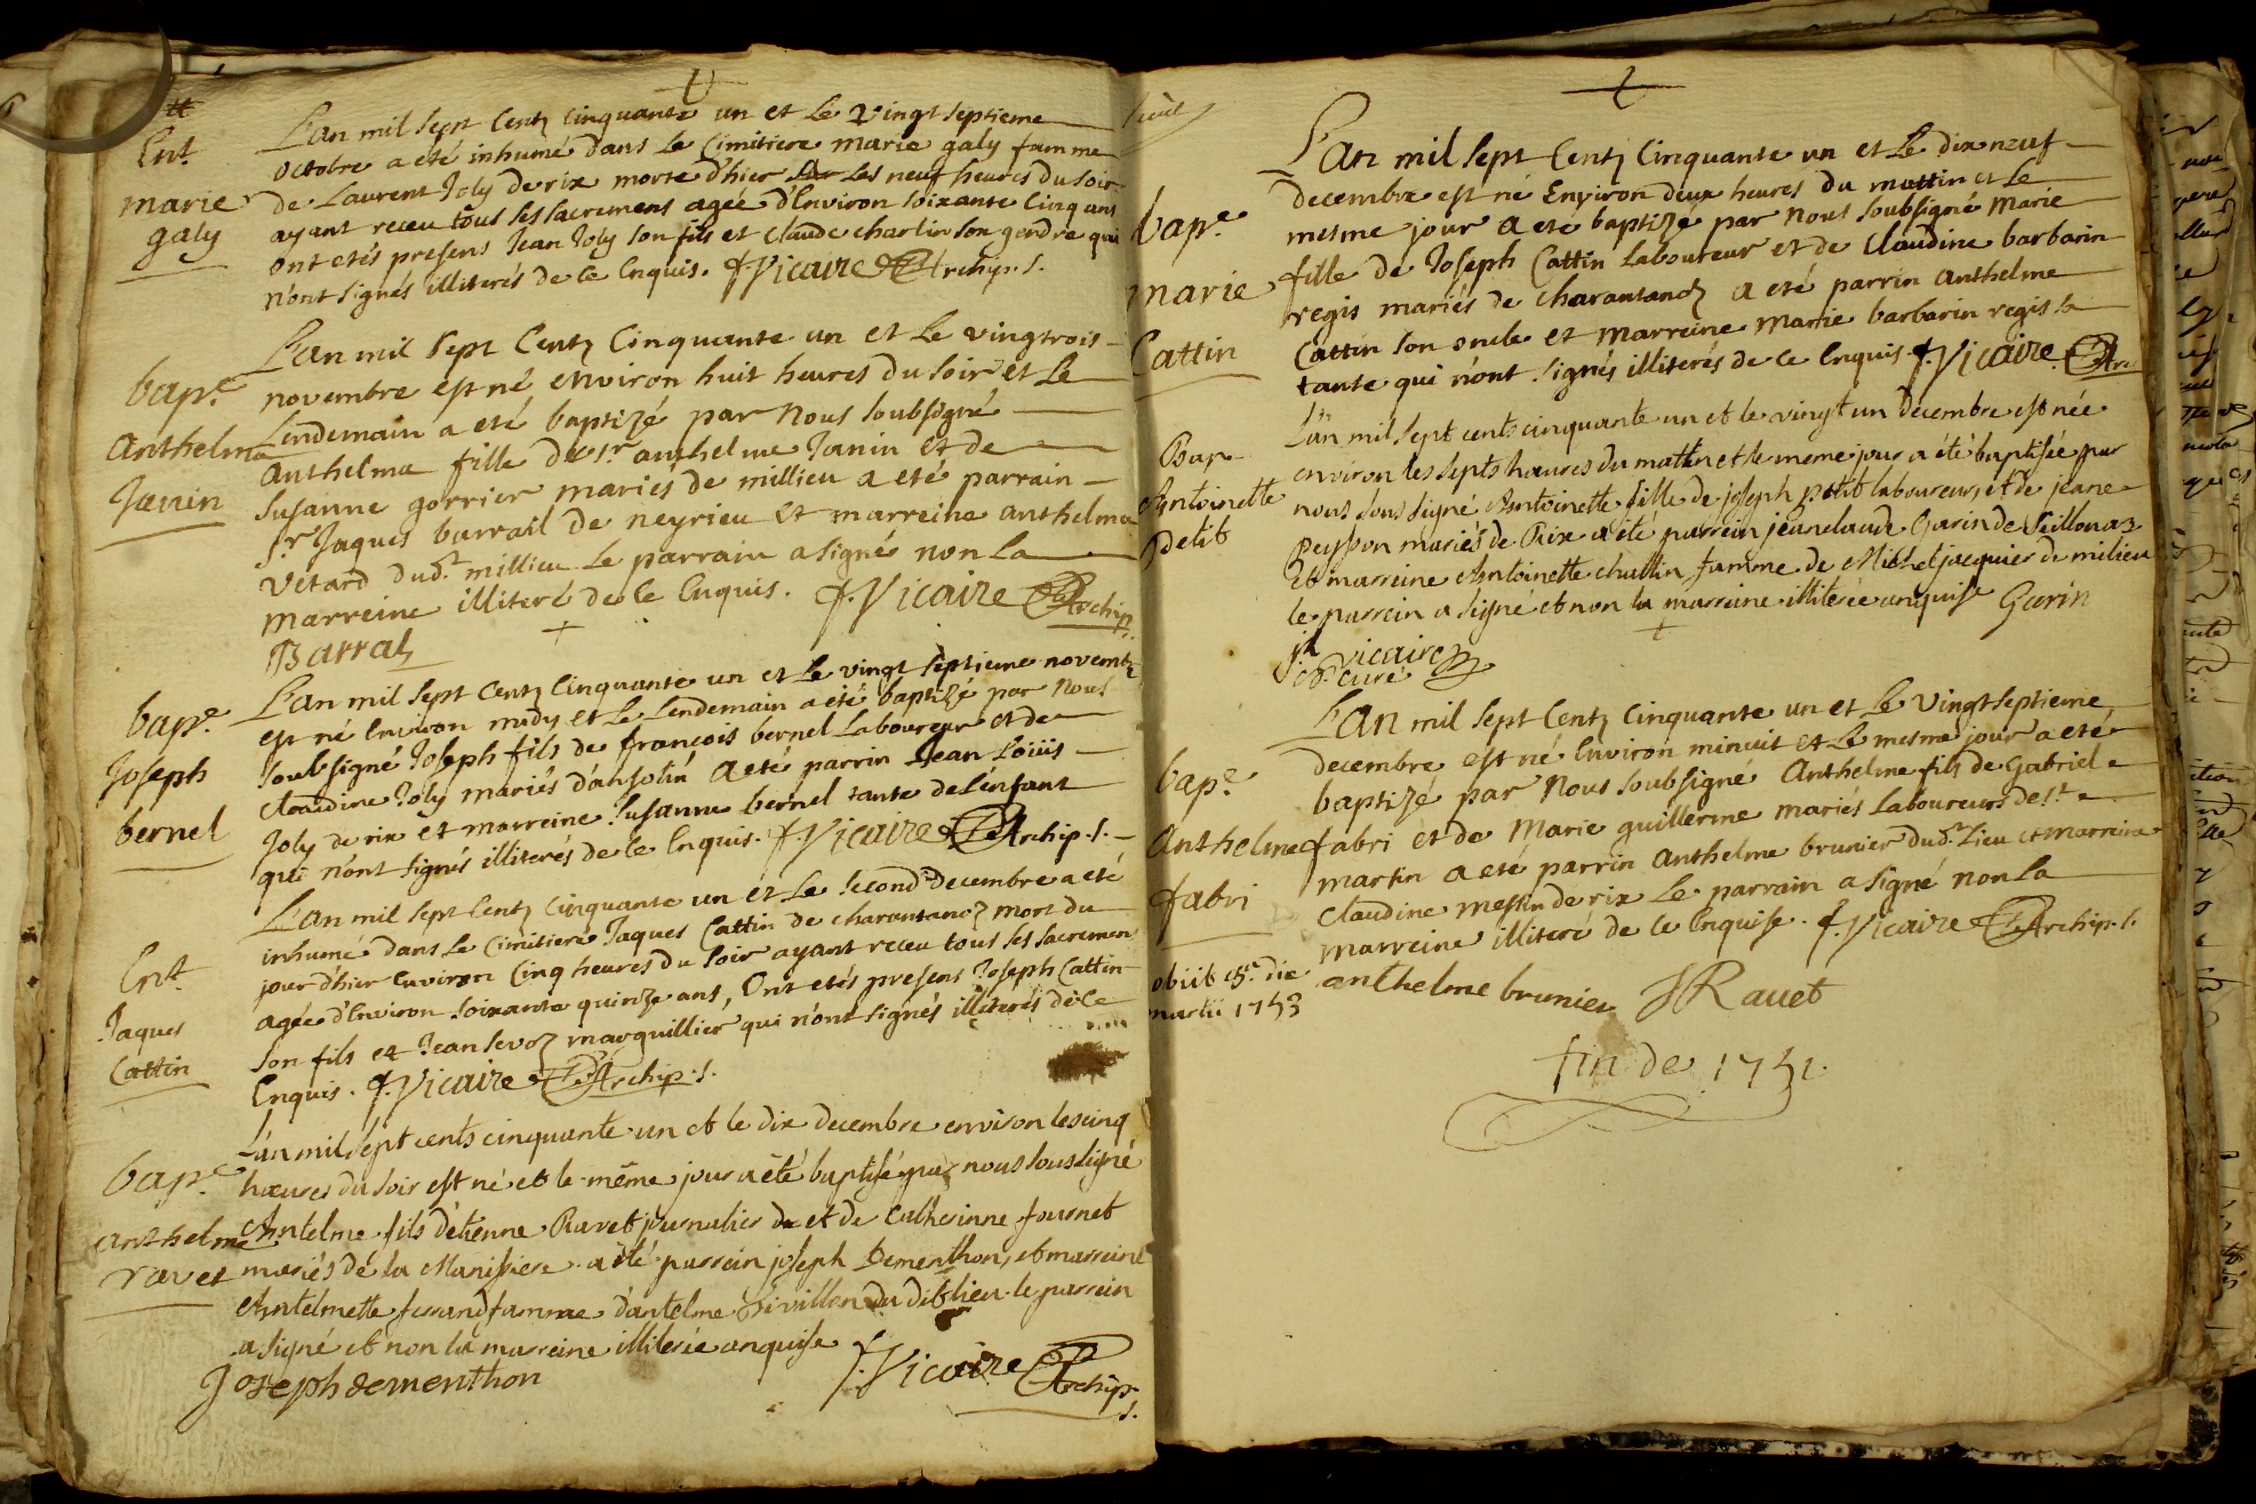 Ent.
marie
galy
L'an mil sept Cents cinquante un et Le Vingt septieme
octobre a eté inhumé dans Le Cimitiere marie galy famme
de Laurent Joly de rix morte d'hier Les neuf heures du soir
ayant receu tous ses sacremens agée d'Environ soixante Cinq ans
ont etés presens Jean Joly son fils et Claude charlin son gendre qui
n'ont signés illiterés de Ce Enquis. f. Vicaire Archip. s.
bap.e
Anthelma
Janin
L'an mil Sept Cents Cinquante un et Le vingtrois
novembre est né environ huit heures du soir et Le
Lendemain a eté baptizé par Nous soubsigné
Anthelma fille de sr. anthelme Janin et de
Susanne gorrier mariés de millieu a eté parrain
sr Jaques barrail de neyrieu et marreine anthelma
Vetard dud.t millieu Le parrain a signé non La
marreine illiteré de Ce Enquis. f. Vicaire Archip.
Barral
bap.e
Joseph
bernel
L'an mil sept Cents Cinquante un et Le vingt septieme novembre
est né Environ midy et Le Lendemain a eté baptizé par Nous
soubsigné Joseph fils de françois bernel Laboureur et de
Claudine Joly mariés d'ansolin a eté parrin Jean Loüis
Joly de rix et marreine Susanne bernel tante de l'enfant
qui n'ont signés illiterés de Ce Enquis. f. Vicaire Archip. s.
Ent.
Jaques
Cattin
L'an mil sept Cents Cinquante un et Le second decembre a eté
inhumé dans Le Cimitiere Jaques Cattin de charantanoz mort du
jour d'hier Environ Cinq heures du soir ayant receu tous ses sacremen
agée d'Environ soixante quinze ans, Ont etés presens Joseph Cattin
son fils et Jean sevoz marguillier qui n'ont signés illiterés de Ce
Enquis. f. Vicaire Archip. s.
bap.e
anthelme
ravet
L'an mil sept cents cinquante un et le dix decembre environ les cinq
hœures du soir est né et le même jour a été baptisé par nous soussigné
Antelme fils d'étienne Ravet journalier de et de Catherinne fournet
mariés de la Manissiere a été parrein joseph Dementhon, et marreine
Antelmette ferrand famme d'antelme sivillon du dit lieu le parrein
a signé et non la marreine illiterée enquise
Joseph dementhon f. Vicaire Archip. s.
bap.e
marie
Cattin
L'an mil sept Cents Cinquante un et Le dix neuf
decembre est né Environ deux heures du mattin et Le
mesme jour a eté baptizé par Nous soubsigné Marie
fille de Joseph Cattin Laboureur et de Claudine barbarin
regis mariés de charantanoz a eté parrin anthelme
Cattin son oncle et marreine Marie barbarin regis sa
tante qui n'ont signés illiterés de Ce Enquis f. Vicaire Ar.
Bap.
Antoinette
Petit
L'an mil sept cents cinquante un et le vingt un decembre est née
environ les septs hœures du mattin et le meme jour a été baptisée par
nous sous signé Antoinette fille de joseph petit laboureur, et de jeane
Peysson mariés de Rix a été parrein jeanclaude Garin de Seillonaz
et marreine Antoinette chattin famme de Michel jacquier de milieu
le parrein a signé et non la marreine illiterée anquise Garin
vicaire
curé
bap.e
Anthelme
fabri
L'an mil sept Cents Cinquante un et Le Vingt septieme
decembre est né Environ minuit et Le mesme jour a eté
baptizé par Nous soubsigné Anthelme fils de Gabriel
fabri et de Marie guillerme mariés Laboureurs de st.
martin a eté parrin anthelme brunier dud.t Lieu et marreine
Claudine mestin de rix Le parrain a signé non La
marreine illiteré de Ce Enquise. f. Vicaire Archip. s.
obiit 15.a die
martii 1753
anthelme brunier Ravet
fin de 1751.